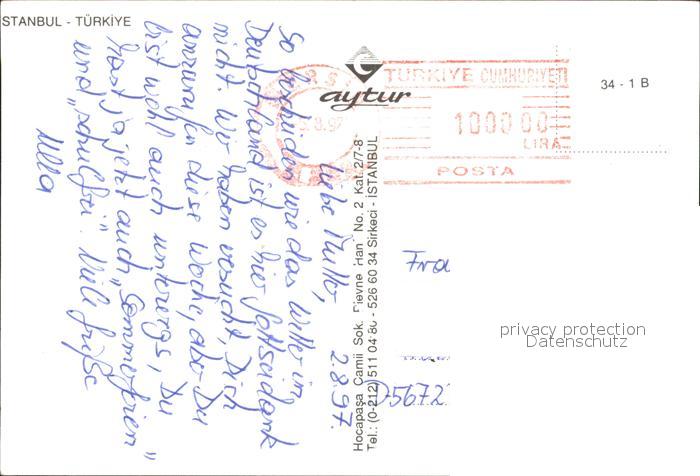 STANBUL - TÜRKİYE
34 - 1 B
TÜRKİYE CUMHURİYETİ
100000
LIRA
POSTA
aytur
Hocapaşa Camii Sok. Han No. 2 Kat. 2/7-8
Tel.: (0-212) 511 04 80 - 526 60 34 Sirkeci - İSTANBUL
2.8.97.
Liebe Mutter,
So wie das Wetter in
Deutschland ist es hier Gottseidank
nicht. Wir haben versucht, Dich
anzurufen diese Woche, aber Du
bist wohl auch unterwegs, Du
hast ja jetzt auch "Sommerferien"
und "schulfrei". Viele Grüße
Ulla
Fra
D-5672
privacy protection
Datenschutz